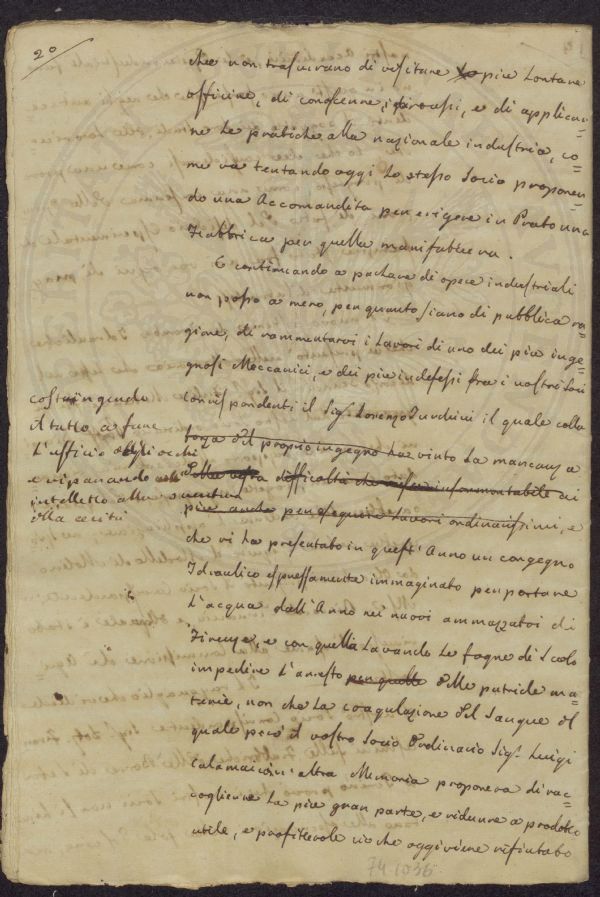 20
che non trascurano di visitare le piu lontane
officine, di conoscerne i processi, e di applicar-
ne le pratiche alla nazionale industria, co-
me va tentando oggi lo stesso Socio proponen-
do una Accomandita per erigere in Prato una
Fabbrica per quella manifattura.
E continuando a parlare di opere industriali
non posso a meno, per quanto siano di pubblica ra-
gione, di rammentarvi i lavori di uno dei piu inge-
gnosi Meccanici, e dei piu indefessi fra i nostri Soci
Corrispondenti il Sig.r Lorenzo Turchini il quale colla
forza del proprio ingegno ha vinto la mancanza
della vista difficoltà che insormontabile di
piu anche per eseguire lavori ordinarissimi, e
che vi ha presentato in quest' Anno un congegno
Idraulico espressamente immaginato per portare
l'acqua dall'Arno nei nuovi ammazzatoi di
Firenze, e con quella lavando le fogne di scolo
impedire l'arresto per quelle delle putride ma-
terie, non che la coagulazione del sangue del
quale però il vostro Socio Ordinario Sig.r Luigi
Calamai in altra Memoria proponeva di rac-
coglierne la piu gran parte, e ridurre a prodotto
utile, e profittevole cio che oggi viene rifiutato
costringendo
il tatto a fare
l'uffizio degli occhi
e riparando coll'
intelletto alla sventura
della cecità
74 1036